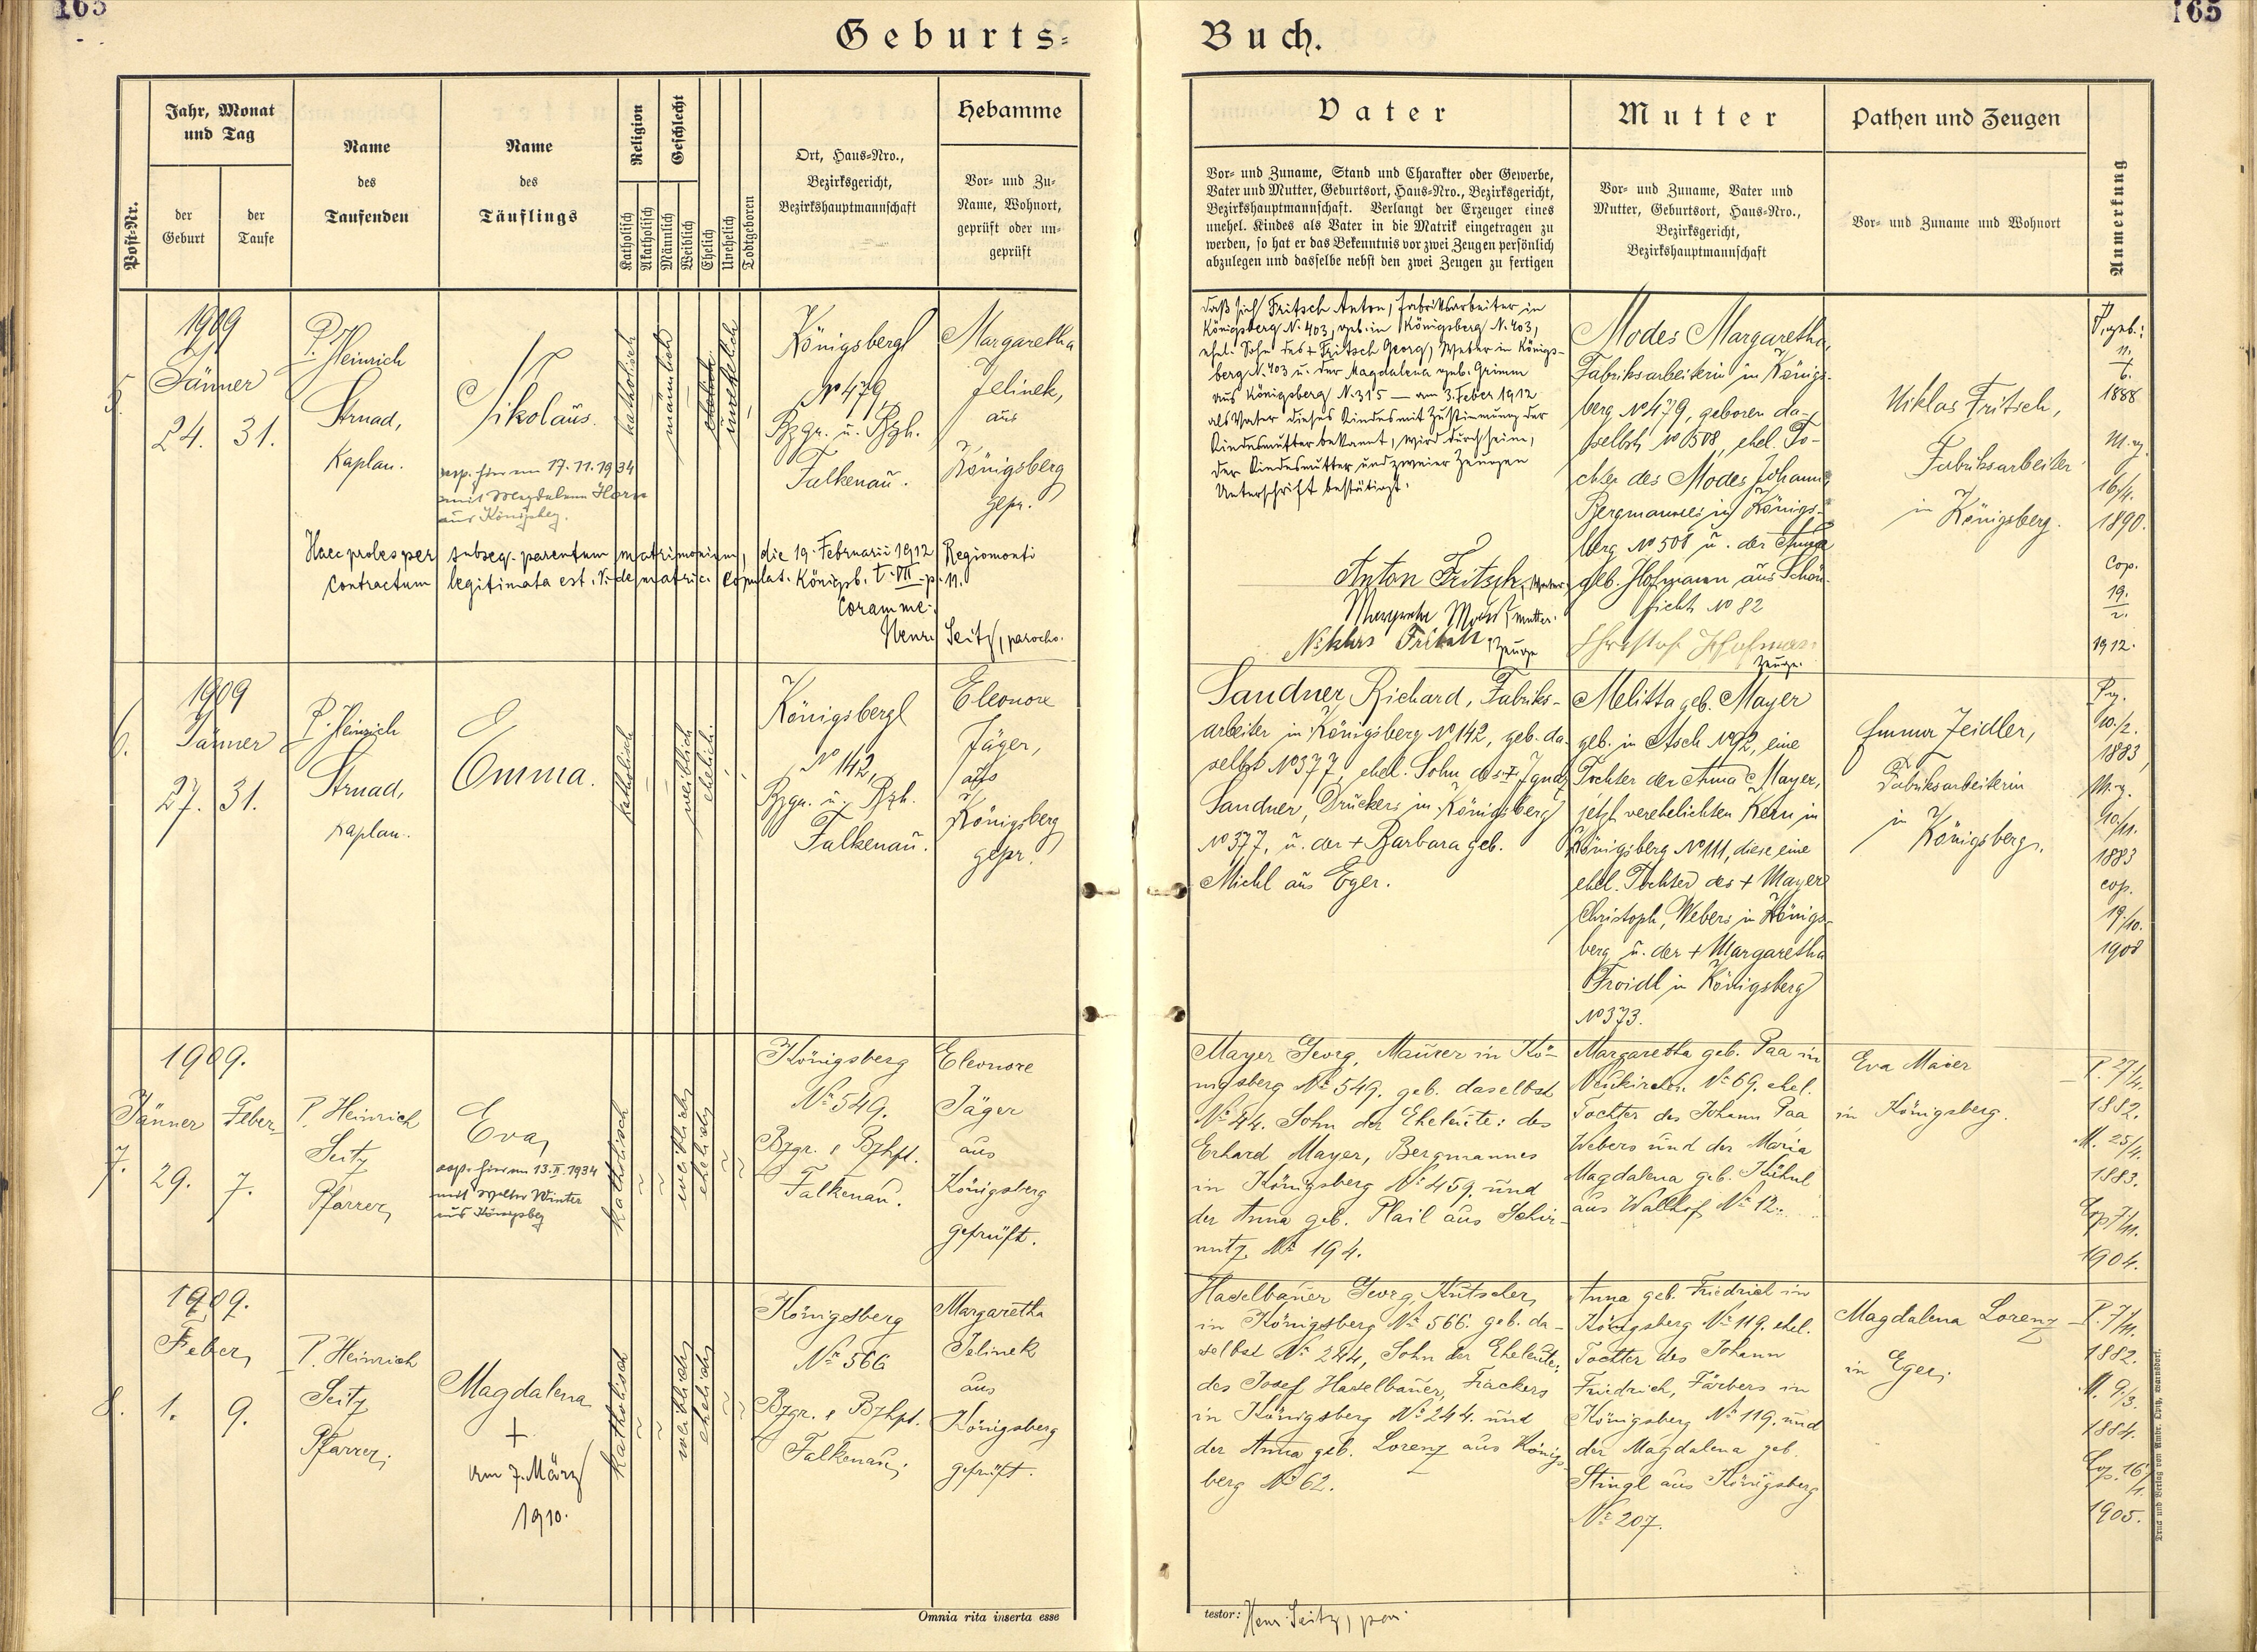 165
165
Geburts-
Buch.
Post-Nr.
Jahr, Monat
und Tag
der
Geburt
der
Taufe
Name
des
Taufenden
Name
des
Täuflings
Religion
Katholisch
Akatholisch
Geschlecht
Männlich
Weiblich
Ehelich
Unehelich
Todtgeboren
Ort, Haus-Nro.,
Bezirksgericht,
Bezirkshauptmannschaft
Hebamme
Vor- und Zu-
Name, Wohnort,
geprüft oder un-
geprüft
Vater
Vor- und Zuname, Stand und Charakter oder Gewerbe,
Vater und Mutter, Geburtsort, Haus-Nro., Bezirksgericht,
Bezirkshauptmannschaft. Verlangt der Erzeuger eines
unehel. Kindes als Vater in die Matrik eingetragen zu
werden, so hat er das Bekenntnis vor zwei Zeugen persönlich
abzulegen und dasselbe nebst den zwei Zeugen zu fertigen
Mutter
Vor- und Zuname, Vater und
Mutter, Geburtsort, Haus-Nro.,
Bezirksgericht,
Bezirkshauptmannschaft
Pathen und Zeugen
Vor- und Zuname und Wohnort
Anmerkung
5.
1909
Jänner
24. 31.
P. Heinrich
Strnad,
Kaplan.
Nikolaus.
cop. hier am 17.11.1934
mit Magdalena Horn
aus Königsbeg.
katholisch
männlich
ehelich
unehelich
Königsberg
No 479,
Bzgr. u. Bzh.
Falkenau.
Margaretha
Jelinek,
aus
Königsberg
gepr.
Haec proles per subseq. parentum matrimonium, die 19. Februarii 1912 Regiomonti
contractum legitimata est. Vide matric. copulat. Königsb. t. VII p. 11.
Coram me:
Henr. Seitz, parocho.
daß sich Fritsch Anton, Fabriksarbeiter in
Königsberg N. 403, geb. in Königsberg N. 403,
ehel. Sohn des + Fritsch Georg, Weber in Königs-
berg N. 403 u. der Magdalena geb. Grimm
aus Königsberg N. 315 — am 3. Feber 1912
als Vater dieses Kindes mit Zustimmung der
Kindesmutter bekannt, wird durch seine,
der Kindesmutter und zweier Zeugen
Unterschrift bestätigt.
Anton Fritsch, Vater.
Margaretha Modes, Mutter.
Niklas Fritsch, Zeuge
Modes Margaretha,
Fabriksarbeiterin in Königs-
berg No 479, geboren da-
selbst No 508, ehel. To-
chter des Modes Johann,
Bergmannes in Königs-
berg No 508 u. der Anna
geb. Hofmann aus Schön-
ficht No 82
Christof Hofman
Zeuge.
Niklas Fritsch,
Fabriksarbeiter
in Königsberg.
V. geb.:
11.
6.
1888
M. g.
16/4.
1890.
Cop.
19.
2.
1912.
6.
1909
Jänner
27. 31.
P. Heinrich
Strnad,
Kaplan.
Emma.
katholisch
weiblich
ehelich.
Königsberg
No 142,
Bzgr. u. Bzh.
Falkenau.
Eleonore
Jäger,
aus
Königsberg
gepr.
Sandner Richard, Fabriks-
arbeiter in Königsberg No 142, geb. da-
selbst No 377, ehel. Sohn des + Ignaz
Sandner, Druckers in Königsberg
No 377, u. der + Barbara geb.
Michl aus Eger.
Melitta geb. Mayer
geb. in Asch No 92, eine
Tochter der Anna Mayer,
jetzt verehelichten Kern in
Königsberg No 111, diese eine
ehel. Tochter des + Mayer
Christoph, Webers in Königs-
berg u. der + Margaretha
Froidl in Königsberg
No 373.
Emma Zeidler,
Fabriksarbeiterin
in
Königsberg.
P. g.
10./2.
1883
M. g.
10/11.
1883
cop.
19./10.
1908
7.
1909.
Jänner Feber
29. 7.
P. Heinrich
Seitz
Pfarrer,
Eva,
cop. hier am 13.II.1934
mit Walter Winter
aus Königsbeg
katholisch
weiblich
ehelich
Königsberg
No 549.
Bzgr. & Bzhpt.
Falkenau.
Eleonore
Jäger
aus
Königsberg
geprüft.
Mayer Georg, Maurer in Kö-
nigsberg No 549. geb. daselbst
No 44. Sohn der Eheleute: des
Erhard Mayer, Bergmannes
in Königsberg No 459. und
der Anna geb. Plail aus Schir-
nutz No 194.
Margaretha geb. Paa in
Neukirchen No 69. ehel.
Tochter des Johann Paa
Webers und der Maria
Magdalena geb. Kühnl
aus Wallhof No 12.
Eva Maier
in Königsberg.
P. 27/4.
1882.
M. 25/4.
1883.
Cop 7/11.
1904.
8.
1909.
Feber
1. 9.
P. Heinrich
Seitz
Pfarrer.
Magdalena
+
am 7. März
1910.
katholisch
weiblich
ehelich
Königsberg
No 566
Bzgr. & Bzhpt.
Falkenau.
Margaretha
Jelinek
aus
Königsberg
geprüft.
Haselbauer Georg, Kutscher
in Königsberg No 566. geb. da-
selbst No 244, Sohn der Eheleute:
des Josef Haselbauer, Häckers
in Königsberg No 244. und
der Anna geb. Lorenz aus Königs-
berg No 62.
Anna geb. Friedrich in
Königsberg No 119. ehel.
Tochter des Johann
Friedrich, Färbers in
Königsberg No 119. und
der Magdalena geb.
Stingl aus Königsberg
No 207.
Magdalena Lorenz
in Eger.
P. 7/11.
1882.
M. 9./3.
1884.
Cop. 16/1.
1905.
Omnia rita inserta esse
testor: Henr. Seitz, par.
Druck und Verlag von Ambr. Opitz, Warnsdorf.